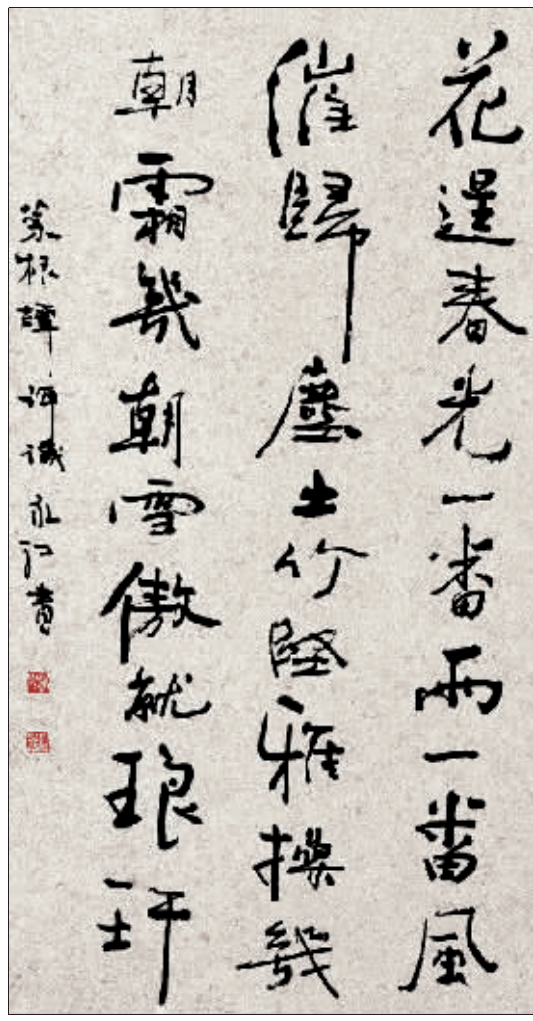 花逞春光一番雨一番風
催歸塵土竹堅雅操幾
朝霜幾朝雪傲就琅玕
菜根譚 評議 永 書